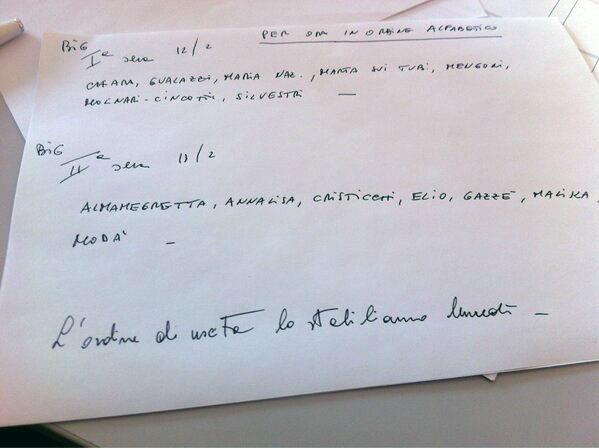 PER ORA IN ORDINE ALFABETICO
BIG Iª sera 12/2
CHIARA, GUALAZZI, MARIA NAZ., MARTA SUI TUBI, MENGONI,
MOLNARI-CINCOTTI, SILVESTRI —
BIG IIª sera 13/2
ALMAMEGRETTA, ANNALISA, CRISTICCHI, ELIO, GAZZÈ, MALIKA,
MODÀ —
L'ordine di uscita lo stabiliamo lunedì —